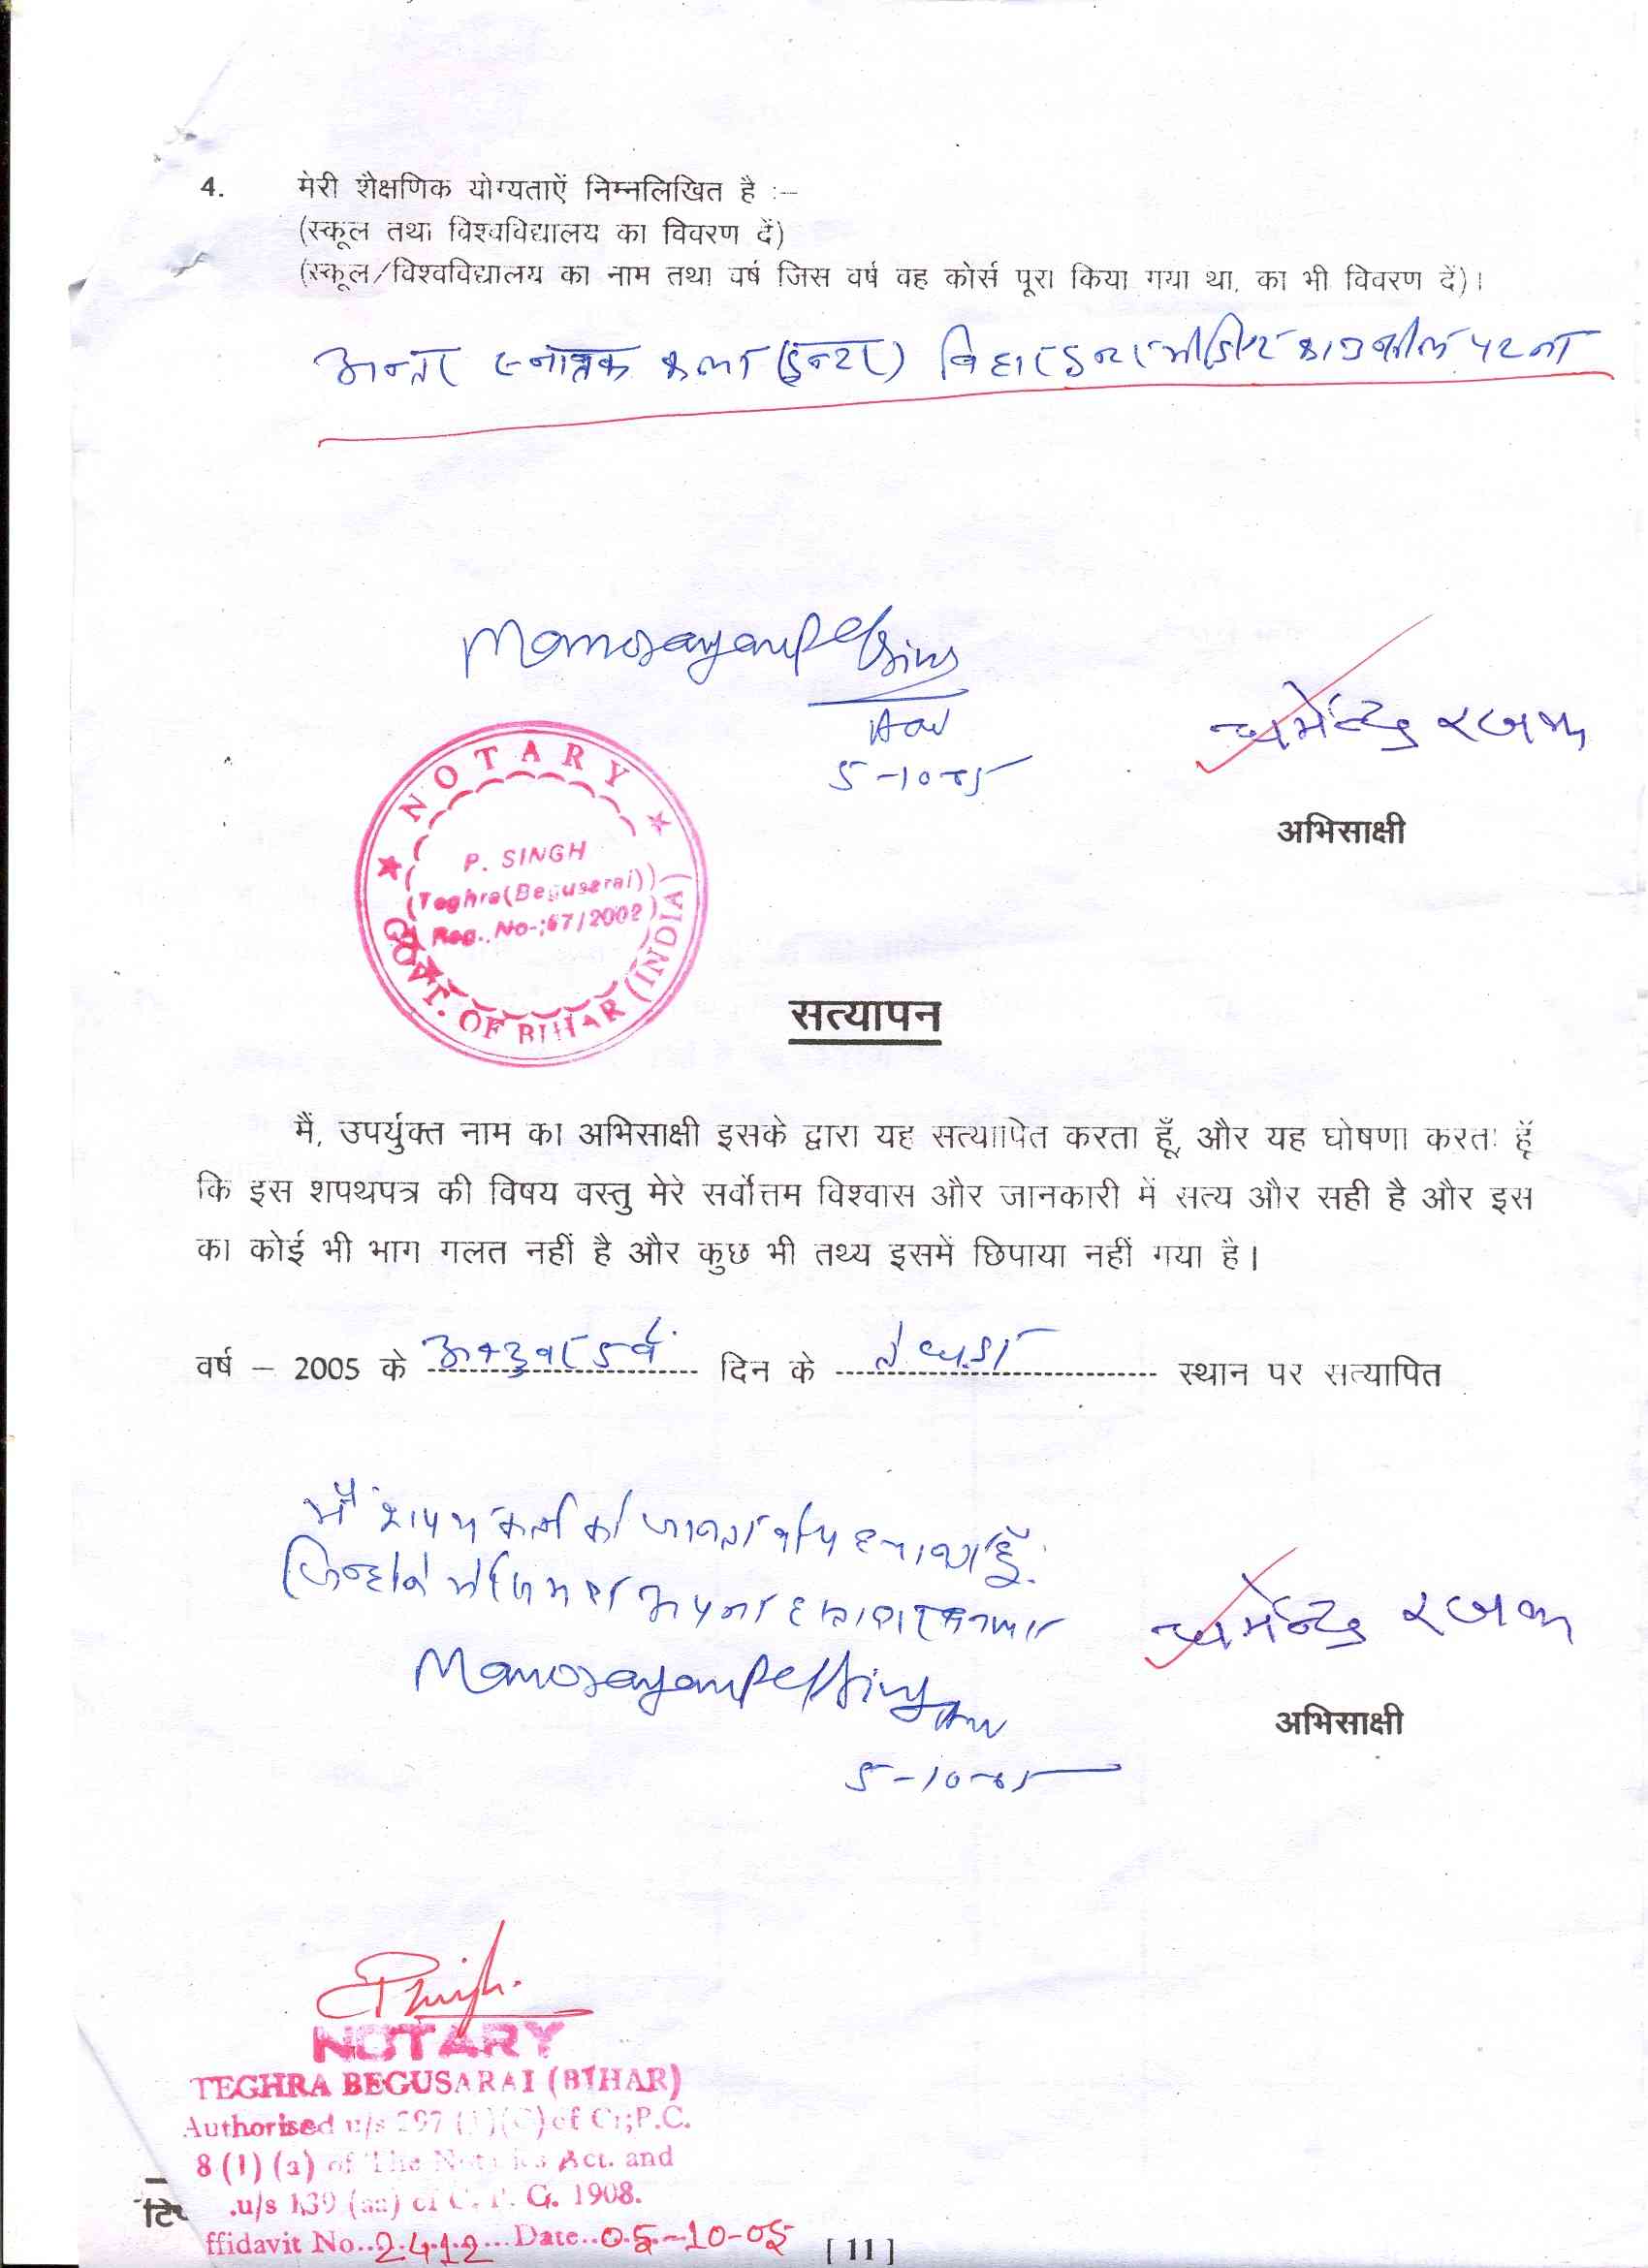 4. मेरी शैक्षणिक योग्यताऐं निम्नलिखित है :–
(स्कूल तथा विश्वविद्यालय का विवरण दें)
(स्कूल/विश्वविद्यालय का नाम तथा वर्ष जिस वर्ष वह कोर्स पूरा किया गया था, का भी विवरण दें)।
अन्तर स्नातक कला (इन्टर) बिहार इन्टरमीडिएट काउन्सील पटना
5-10-05
धर्मेन्द्र रजक
अभिसाक्षी
NOTARY
P. SINGH
(Teghra(Begusarai))
Reg. No-;67/2002
GOVT. OF BIHAR (INDIA)
सत्यापन
मैं, उपर्युक्त नाम का अभिसाक्षी इसके द्वारा यह सत्यापित करता हूँ, और यह घोषणा करता हूँ
कि इस शपथपत्र की विषय वस्तु मेरे सर्वोत्तम विश्वास और जानकारी में सत्य और सही है और इस
का कोई भी भाग गलत नहीं है और कुछ भी तथ्य इसमें छिपाया नहीं गया है।
वर्ष – 2005 के अक्टुबर 5 वें दिन के तेघड़ा स्थान पर सत्यापित
मैं शपथ कर्ता को जानता हूँ
धर्मेन्द्र रजक
5-10-05
अभिसाक्षी
NOTARY
TEGHRA BEGUSARAI (BIHAR)
Authorised u/s 297 (1)(C) of Cr;P.C.
8 (1) (a) of The Notaries Act. and
.u/s 139 (aa) of C. P. G. 1908.
ffidavit No..2412...Date..05-10-05
[ 11 ]